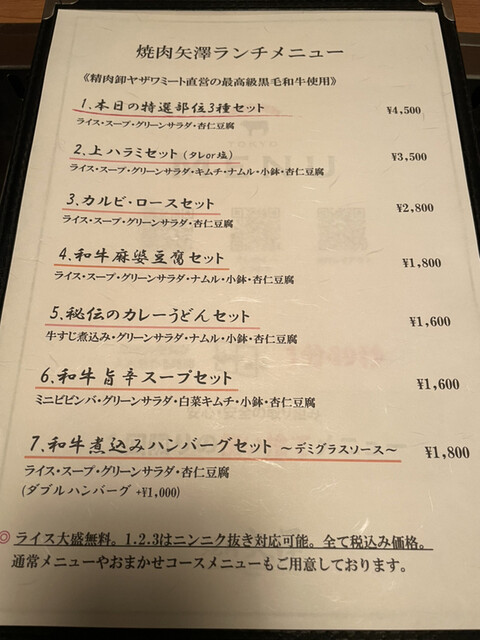 焼肉矢澤ランチメニュー
《精肉卸ヤザワミート直営の最高級黒毛和牛使用》
1.本日の特選部位3種セット ¥4,500
ライス・スープ・グリーンサラダ・杏仁豆腐
2.上ハラミセット(タレor塩) ¥3,500
ライス・スープ・グリーンサラダ・キムチ・ナムル・小鉢・杏仁豆腐
3.カルビ・ロースセット ¥2,800
ライス・スープ・グリーンサラダ・杏仁豆腐
4.和牛麻婆豆腐セット ¥1,800
ライス・スープ・グリーンサラダ・ナムル・小鉢・杏仁豆腐
5.秘伝のカレーうどんセット ¥1,600
牛すじ煮込み・グリーンサラダ・ナムル・小鉢・杏仁豆腐
6.和牛旨辛スープセット ¥1,600
ミニビビンバ・グリーンサラダ・白菜キムチ・小鉢・杏仁豆腐
7.和牛煮込みハンバーグセット ～デミグラスソース～ ¥1,800
ライス・スープ・グリーンサラダ・杏仁豆腐
(ダブルハンバーグ +¥1,000)
◎ライス大盛無料。1.2.3はニンニク抜き対応可能。全て税込み価格。
通常メニューやおまかせコースメニューもご用意しております。